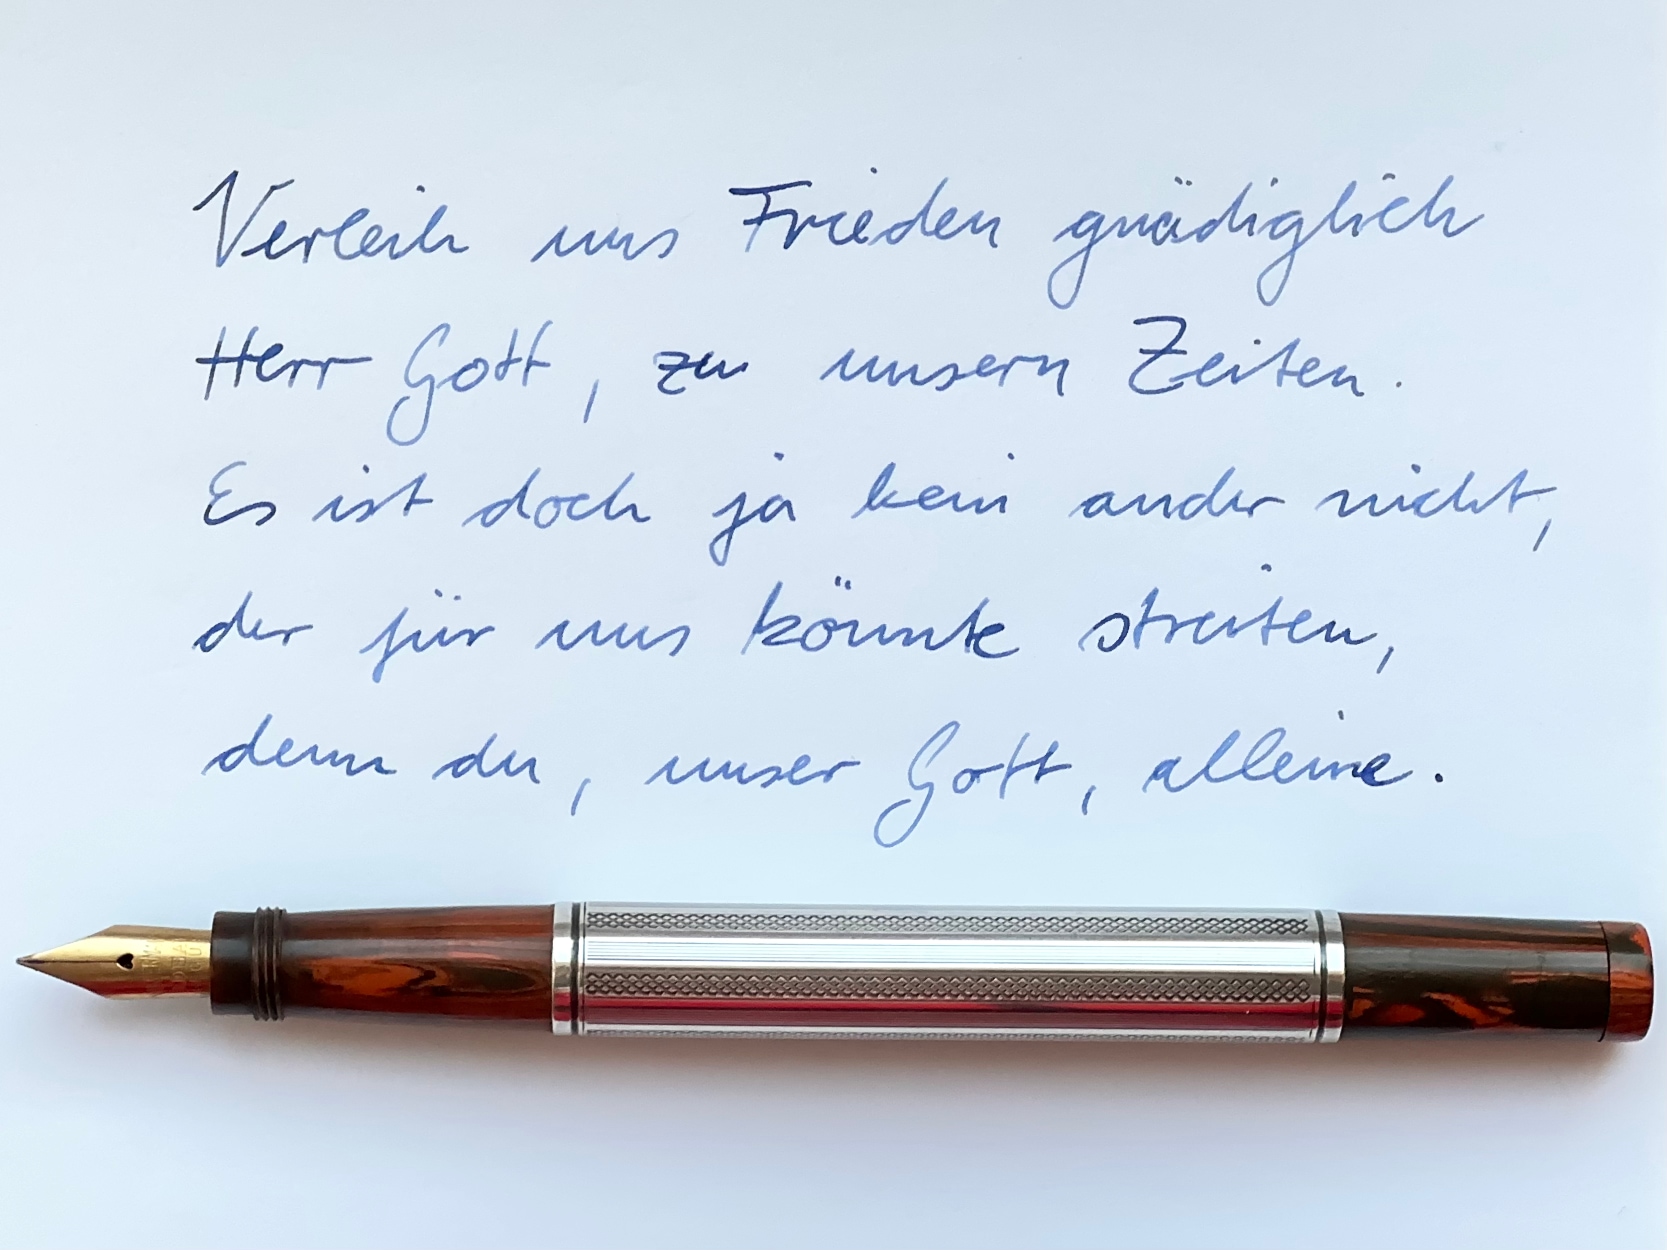 Verleih uns Frieden gnädiglich
Herr Gott, zu unsern Zeiten.
Es ist doch ja kein ander nicht,
der für uns könnte streiten,
denn du, unser Gott, alleine.